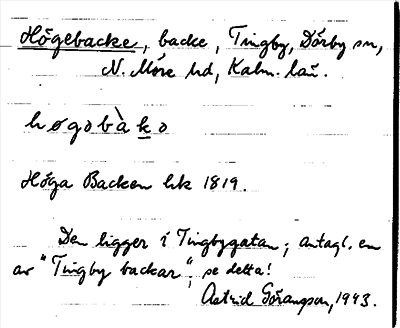 Högebacke, backe, Tingby, Dörby sn,
N. Möre hd, Kalm. län.
høgǝbàkǝ
Höga Backen hk 1819.
Den ligger i Tingbygatan; antagl. en
av "Tingby backar"; se detta!
Astrid Göransson, 1943.